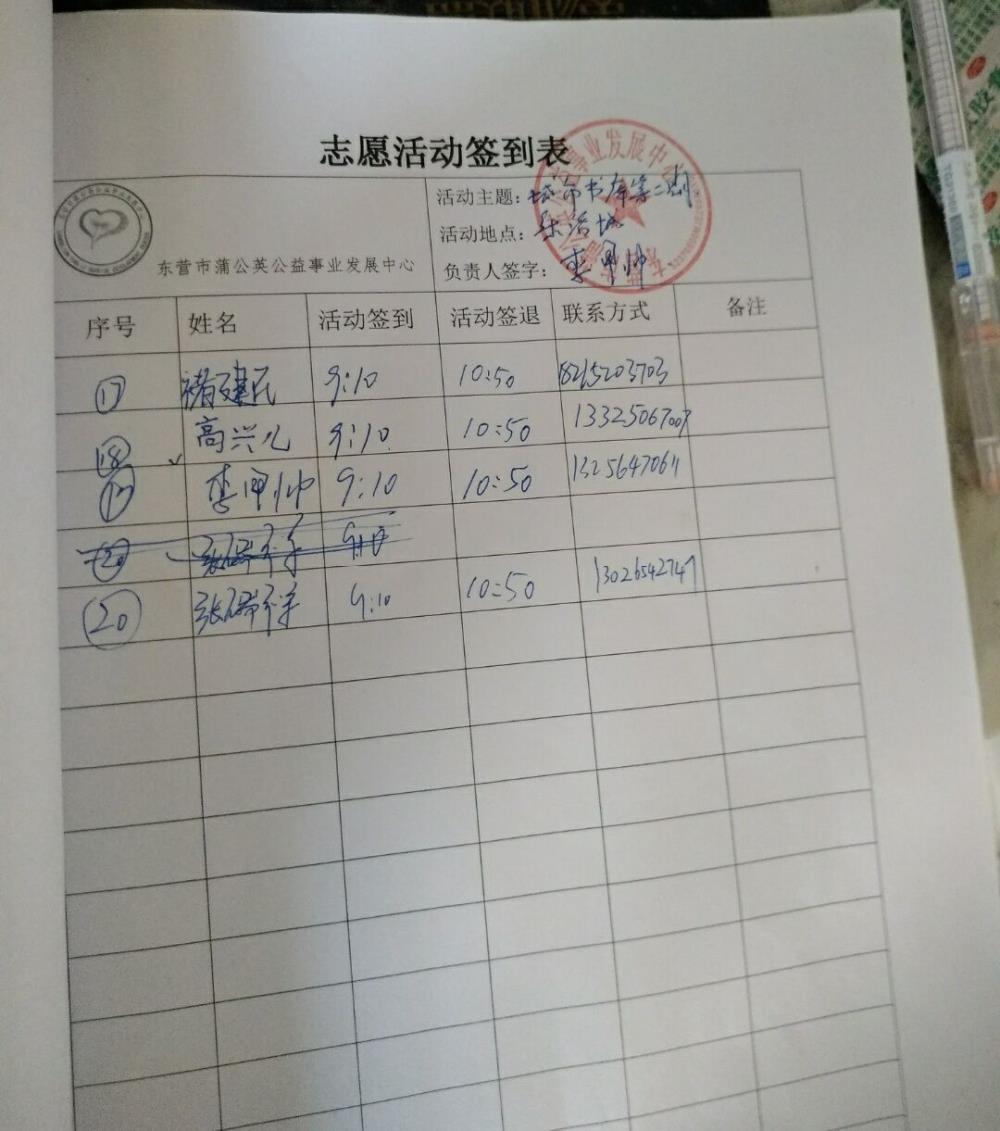 志愿活动签到表
东营市蒲公英公益事业发展中心
活动主题: 城市书房第二割
活动地点: 乐活城
负责人签字: 李甲帅
序号 姓名 活动签到 活动签退 联系方式 备注
17 褚建民 9:10 10:50 18215203703
18 高兴儿 9:10 10:50 13325067007
19 李甲帅 9:10 10:50
20 9:10
20 9:10 10:50 13026542747